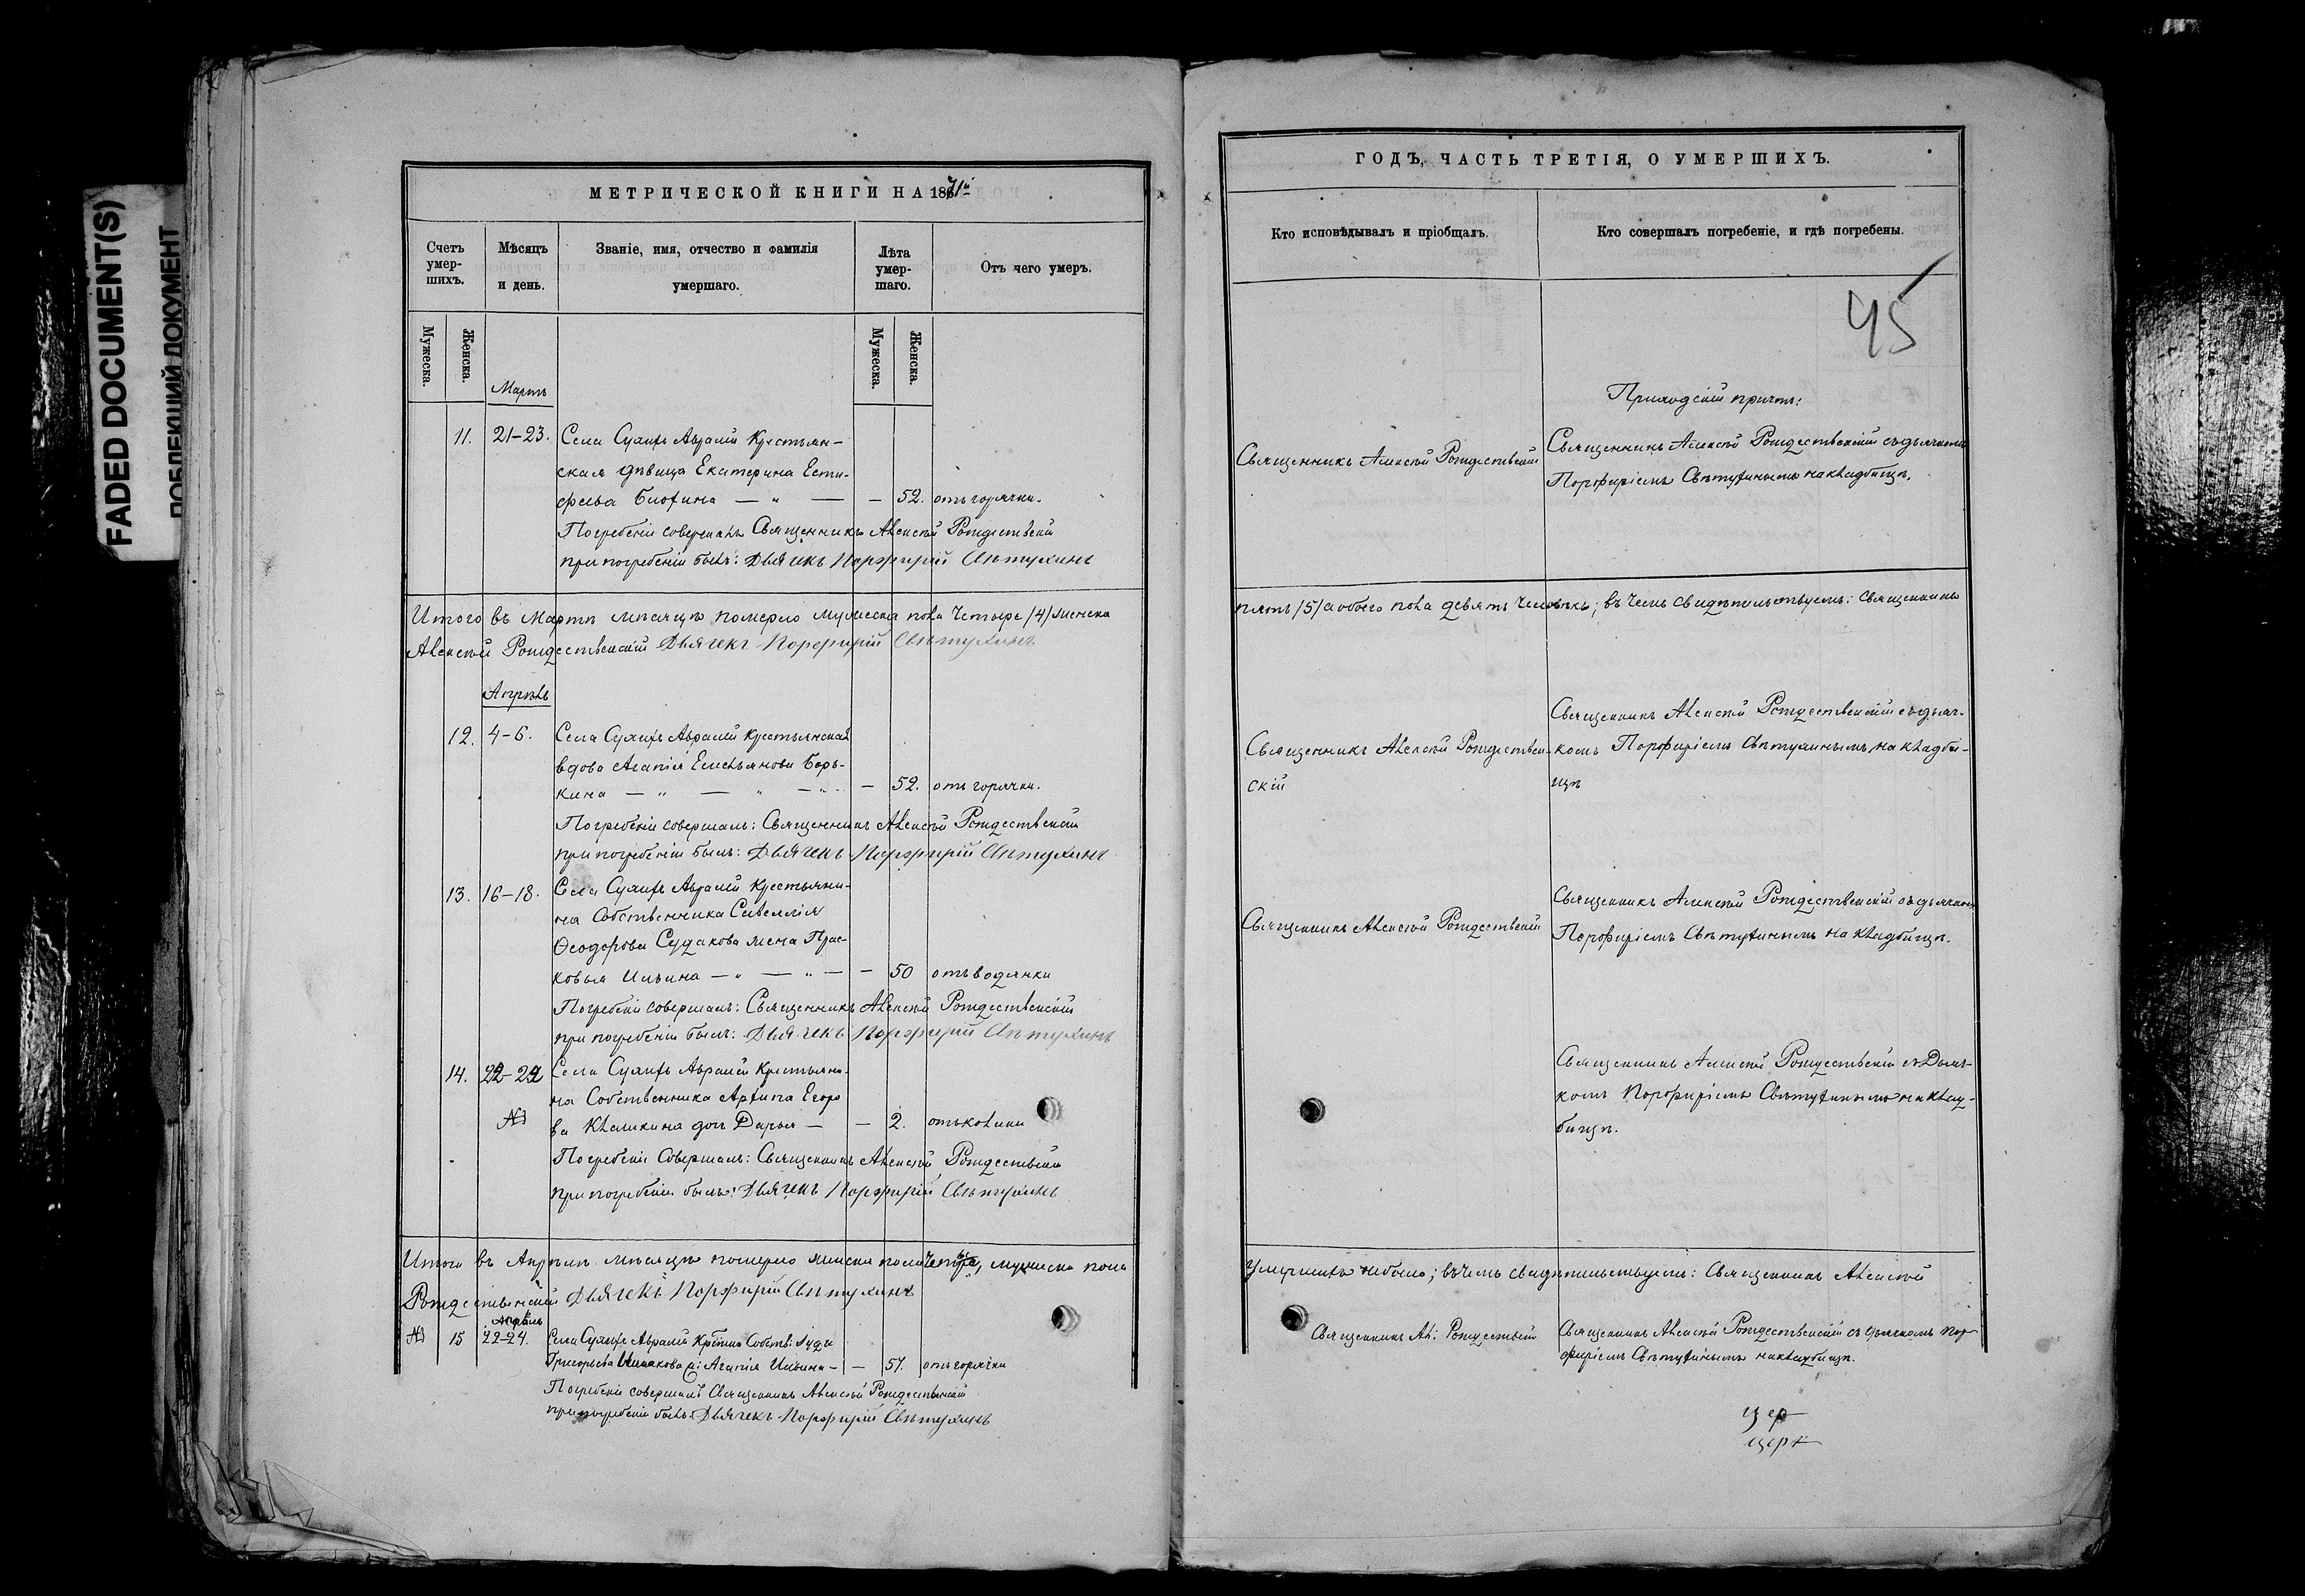 FADED DOCUMENT(S)
ПОБЛЕКШИЙ ДОКУМЕНТ
МЕТРИЧЕСКОЙ КНИГИ НА 1871й
Счетъ умер-шихъ.
Мѣсяцъ и день.
Званіе, имя, отчество и фамилія умершаго.
Лѣта умер-шаго.
Отъ чего умеръ.
Мужеска.
Женска.
Мужеска.
Женска.
Мартъ
11. 21-23. Села Авралей Крестьян-
ская дѣвица Екатерина Ести-
феева — " — — 52. отъ горячки.
Погребеніе совершалъ Священникъ Алексѣй Рождественскій
при погребеніи былъ: Дьячекъ Порфирій Свѣтухинъ
Итого въ Мартѣ мѣсяцѣ померло мужеска пола четыре /4/ женска
Алексѣй Рождественскій Дьячекъ Порфирій Свѣтухинъ
Апрѣль
12. 4-6. Села Авралей Крестьянская
вдова Агапія Емельянова Борь-
кина — " — " — " - — 52. отъ горячки.
Погребеніе совершалъ: Священникъ Алексѣй Рождественскій
при погребеніи былъ: Дьячекъ Порфирій Свѣтухинъ
13. 16-18. Села Авралей Крестьяни-
на Собственника Савеллія
Ѳеодорова Судакова жена Прас-
ковья Ильина — " — " — — 50 отъ водянки
Погребеніе совершалъ: Священникъ Алексѣй Рождественскій
при погребеніи былъ: Дьячекъ Порфирій Свѣтухинъ
14. Села Авралей Крестьяни-
на Собственника Архипа Егоро
ва дочь Дарья — — 2. отъ
Погребеніе Совершалъ: Священникъ Алексѣй Рождественскій
при погребеніи былъ: Дьячекъ Порфирій Свѣтухинъ
Итого въ Апрѣлѣ мѣсяцѣ померло женска пола мужеска пола
Рождественскій Дьячекъ Порфирій Свѣтухинъ
Апрѣль
15 22-24. Села Авралей Собств:
Григорьева Агапія Ильина - — 57. отъ горячки
Погребеніе совершалъ Священникъ Алексѣй Рождественскій
при погребеніи былъ: Дьячекъ Порфирій Свѣтухинъ
ГОДЪ, ЧАСТЬ ТРЕТІЯ, О УМЕРШИХЪ.
Кто исповѣдывалъ и пріобщалъ.
Кто совершалъ погребеніе, и гдѣ погребены.
45
Приходскій причтъ:
Священникъ Алексѣй Рождественскій
Священникъ Алексѣй Рождественскій съ дьячкомъ
Порфиріемъ Свѣтухинымъ на кладбищѣ.
пять /5/ а обоего пола девять человѣкъ; въ чемъ свидѣтельствуемъ: Священникъ
Священникъ Алексѣй Рождествен-
скій
Священникъ Алексѣй Рождественскій съ дьяч-
комъ Порфиріемъ Свѣтухинымъ, на кладби-
щѣ
Священникъ Алексѣй Рождественскій
Священникъ Алексѣй Рождественскій съ дьячкомъ
Порфиріемъ Свѣтухинымъ на кладбищѣ.
Священникъ Алексѣй Рождественскій съ Дьяч-
комъ Порфиріемъ Свѣтухинымъ на клад-
бищѣ.
Умершихъ не было; въ чемъ свидѣтельствуемъ: Священникъ Алексѣй
Священникъ Ал: Рождественскій
Священникъ Алексѣй Рождественскій съ дьячкомъ Пор-
фиріемъ Свѣтухинымъ на кладбищѣ.